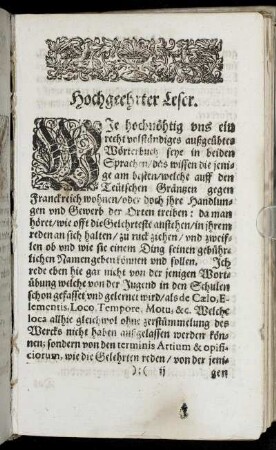 Hochgeehrter Leser.
WIe hochnöhtig vns ein
recht vollständiges außgeübtes
Wörterbuch seye in beiden
Sprachen/das wissen die jeni-
ge am besten/welche auff den
Teütschen Gränzen gegen
Franckreich wohnen/oder doch ihre Handlun-
gen und Gewerb der Orten treiben: da man
höret/wie offt die Gelehrteste anstehen/in ihrem
reden an sich halten/zu ruck ziehen/und zweif-
len ob und wie sie einem Ding seinen gebühr-
lichen Namen geben können und sollen. Ich
rede eben hie gar nicht von der jenigen Wort-
übung welche von der Jugend in den Schulen
schon gefasset vnd gelernet wird/als de Cælo, E-
lementis, Loco, Tempore, Motu, &c. Welche
loca allhie gleichwol ohne zerstümmelung des
Wercks nicht haben außgelassen werden kön-
nen; sondern von den terminis Artium & opifi-
ciorum, wie die Gelehrten reden/von der jeni-
):( ij gen